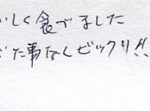 しく食べました
た事なくビックリ!!